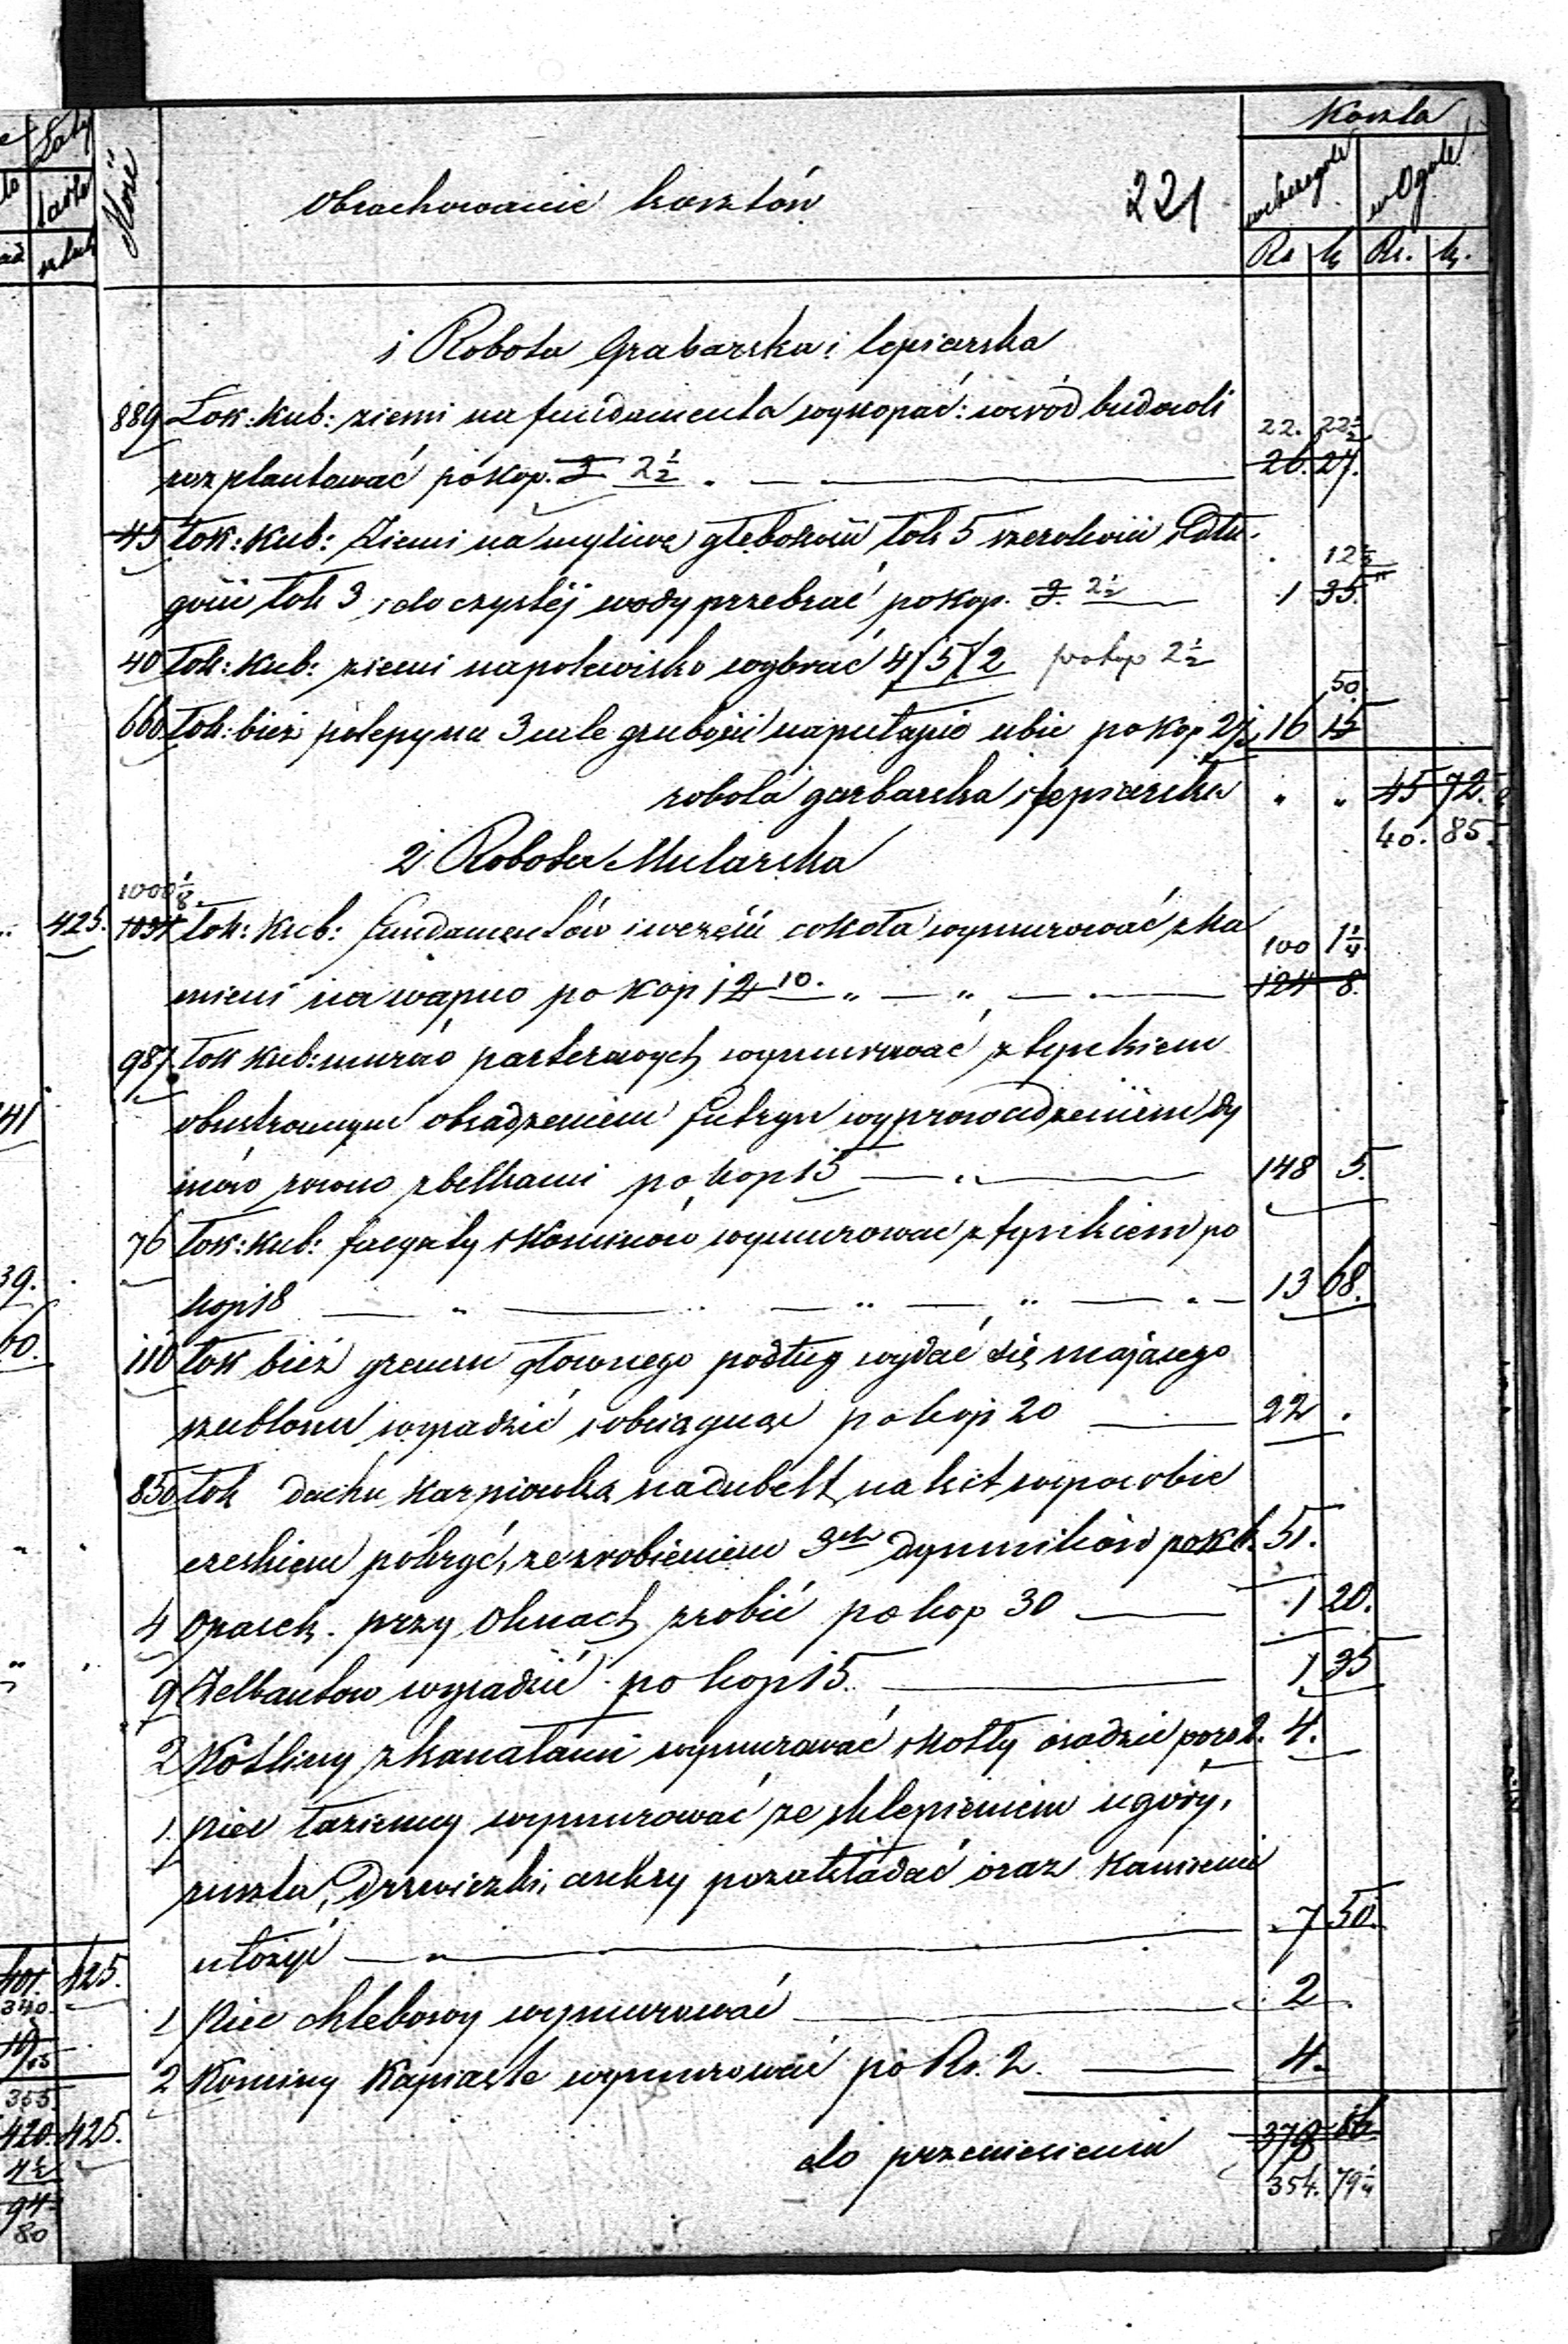 Koszta
Ilość
Obrachowanie kosztów
221
w szczególe
w Ogóle
Rs k Rs. k.
1 Robota Grabarska i lepiarska
889 Łok: Kub: ziemi na fundamenta wykopać i wśród budowli
rozplantować po kop. 3 2½ 22. 22½ 26. 27.
45 łok: Kub: Ziemi na głębokości łok 5 szerokości i dłu-
gości łok 3 i do czystéj wody przebrać po kop. 3. 2½ 12½ 1 35
40 łok: Kub: ziemi na wybrać 4/5/2 po kop 2½
660 łok: bież polepy na 3 cale grubości ubić po kop 2½ 16 50 15
robota garbarska i lepiarska " " 45 72.
40. 85.
2 Robota Mularska
1000⅛
1034 łok: Kub: fundamentów i części cokoła wymurować z ka
mieni na wapno po kop 12 10. 100 1¼ 124 8.
987 łok kub: murów parterowych wymurować z tynkiem
obustronnym obsadzeniem futryn wyprowadzeniem dy
mów równo z belkami po kop 15 148 5.
76 łok: kub: i kominów wymurować z tynkiem po
kop 18 13 68.
110 łok bież gzemsu głównego podług wydać się mającego
szablonu wysadzić i obciągnąć po kop 20 22 .
850 łok dachu karpiowką na dubelt na kit w sposobie
czeskiem pokryć, ze zrobieniem 3ch dymników po k 6. 51.
4 Opasek przy Oknach zrobić po kop 30 1 20.
9 wysadzić po kop 15. 1 35
2 Kotliny z kanałami wymurować i kotły osadzić po rs 2. 4.
1. piec łazienny wymurować ze sklepieniem u góry,
ruszta, Drzwiczki, ankry pozakładać oraz Kamienie
ułożyć 7 50.
1 Piec chlebowy wymurować 2
2 Kominy Kapiaste wymurować po Rs. 2. 4.
do przeniesienia 379 86
354. 79¼
425.
41
39.
60.
401. 425.
340.
355.
420. 425.
94
80